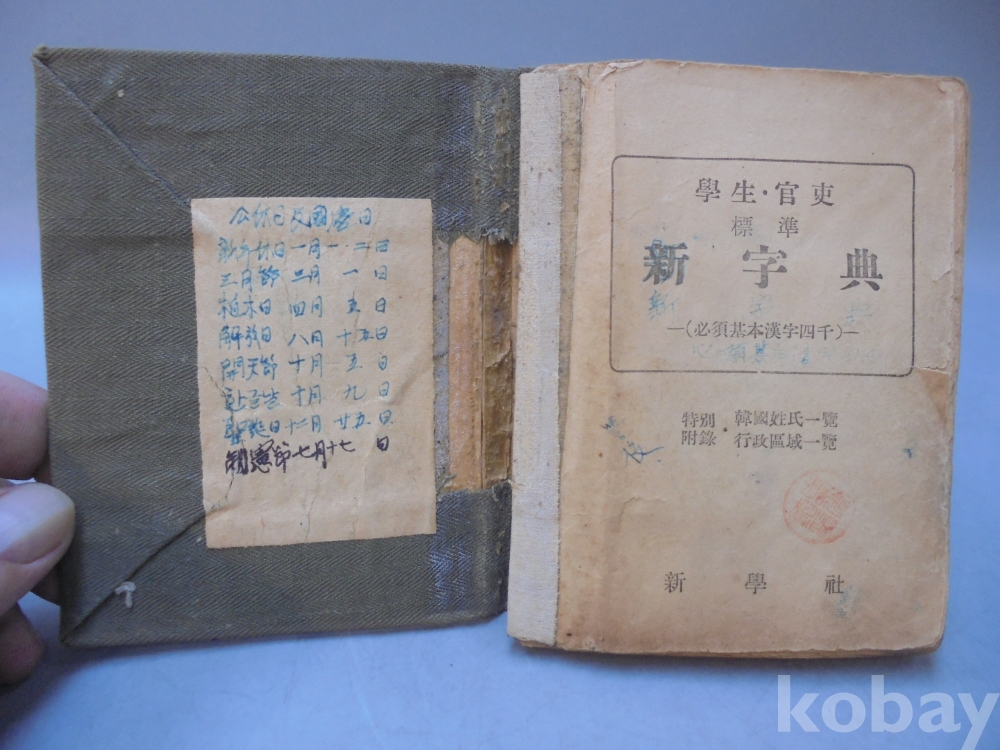 公休日 民國 日
新年休日 一月 一·二日
三月節 二月 一 日
植木日 四月 五 日
解放日 八月 十五日
開天節 十月 五 日
十月 九 日
聖誕日 十二月 廿五日
制憲節 七月十七 日
學生·官吏
標準
新字典
新字典
(必須基本漢字四千)
必須基
特別附錄·韓國姓氏一覽
行政區域一覽
新學社
kobay